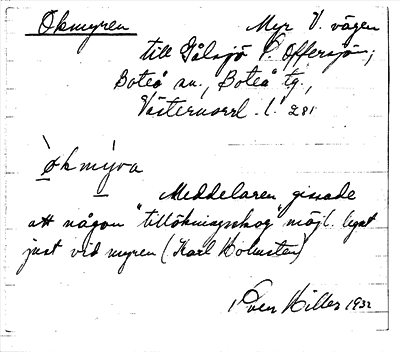 Ökmyren Myr V. vägen
till Gålsjö V. Offersjön,
Boteå sn., Boteå tg.,
Västernorrl. l. 281
ø̀kmýra
Meddelaren gissade
att någon "tillökningsskog" möjl. legat
just vid myren (Karl Holmsten)
Sven Hiller 1932